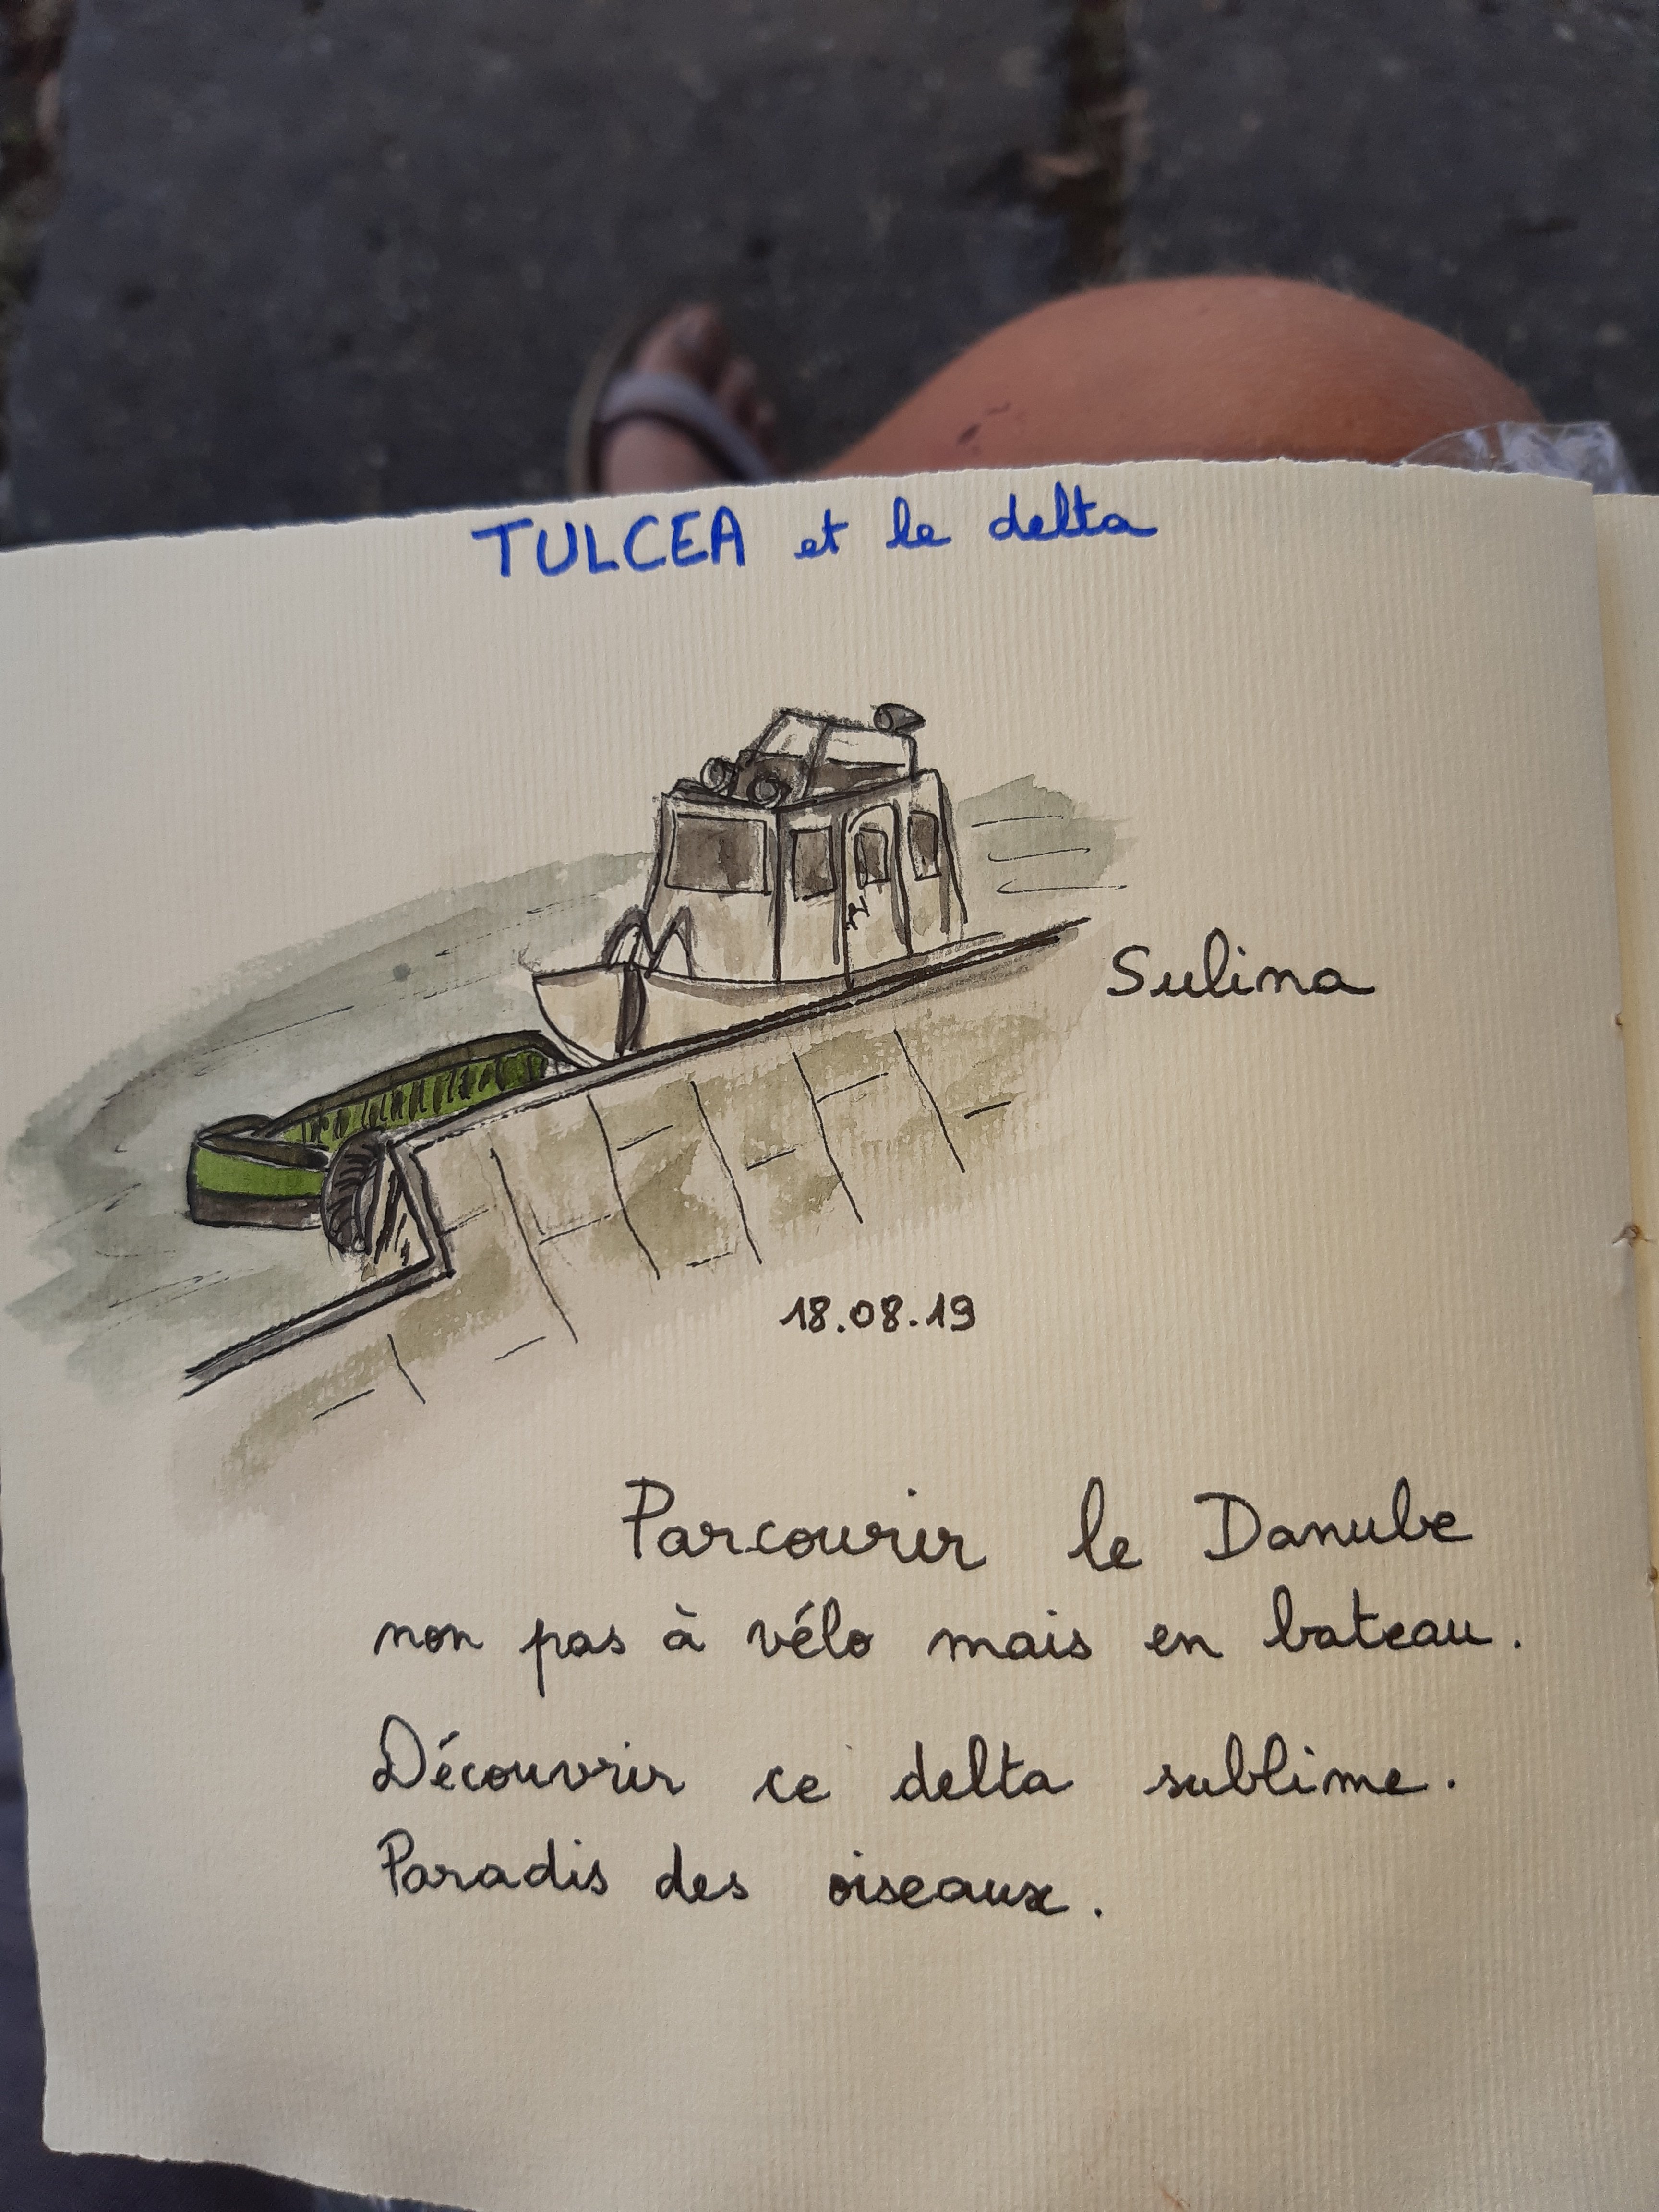 TULCEA et le delta
Sulina
18.08.19
Parcourir le Danube
non pas à vélo mais en bateau.
Découvrir ce delta sublime.
Paradis des oiseaux.